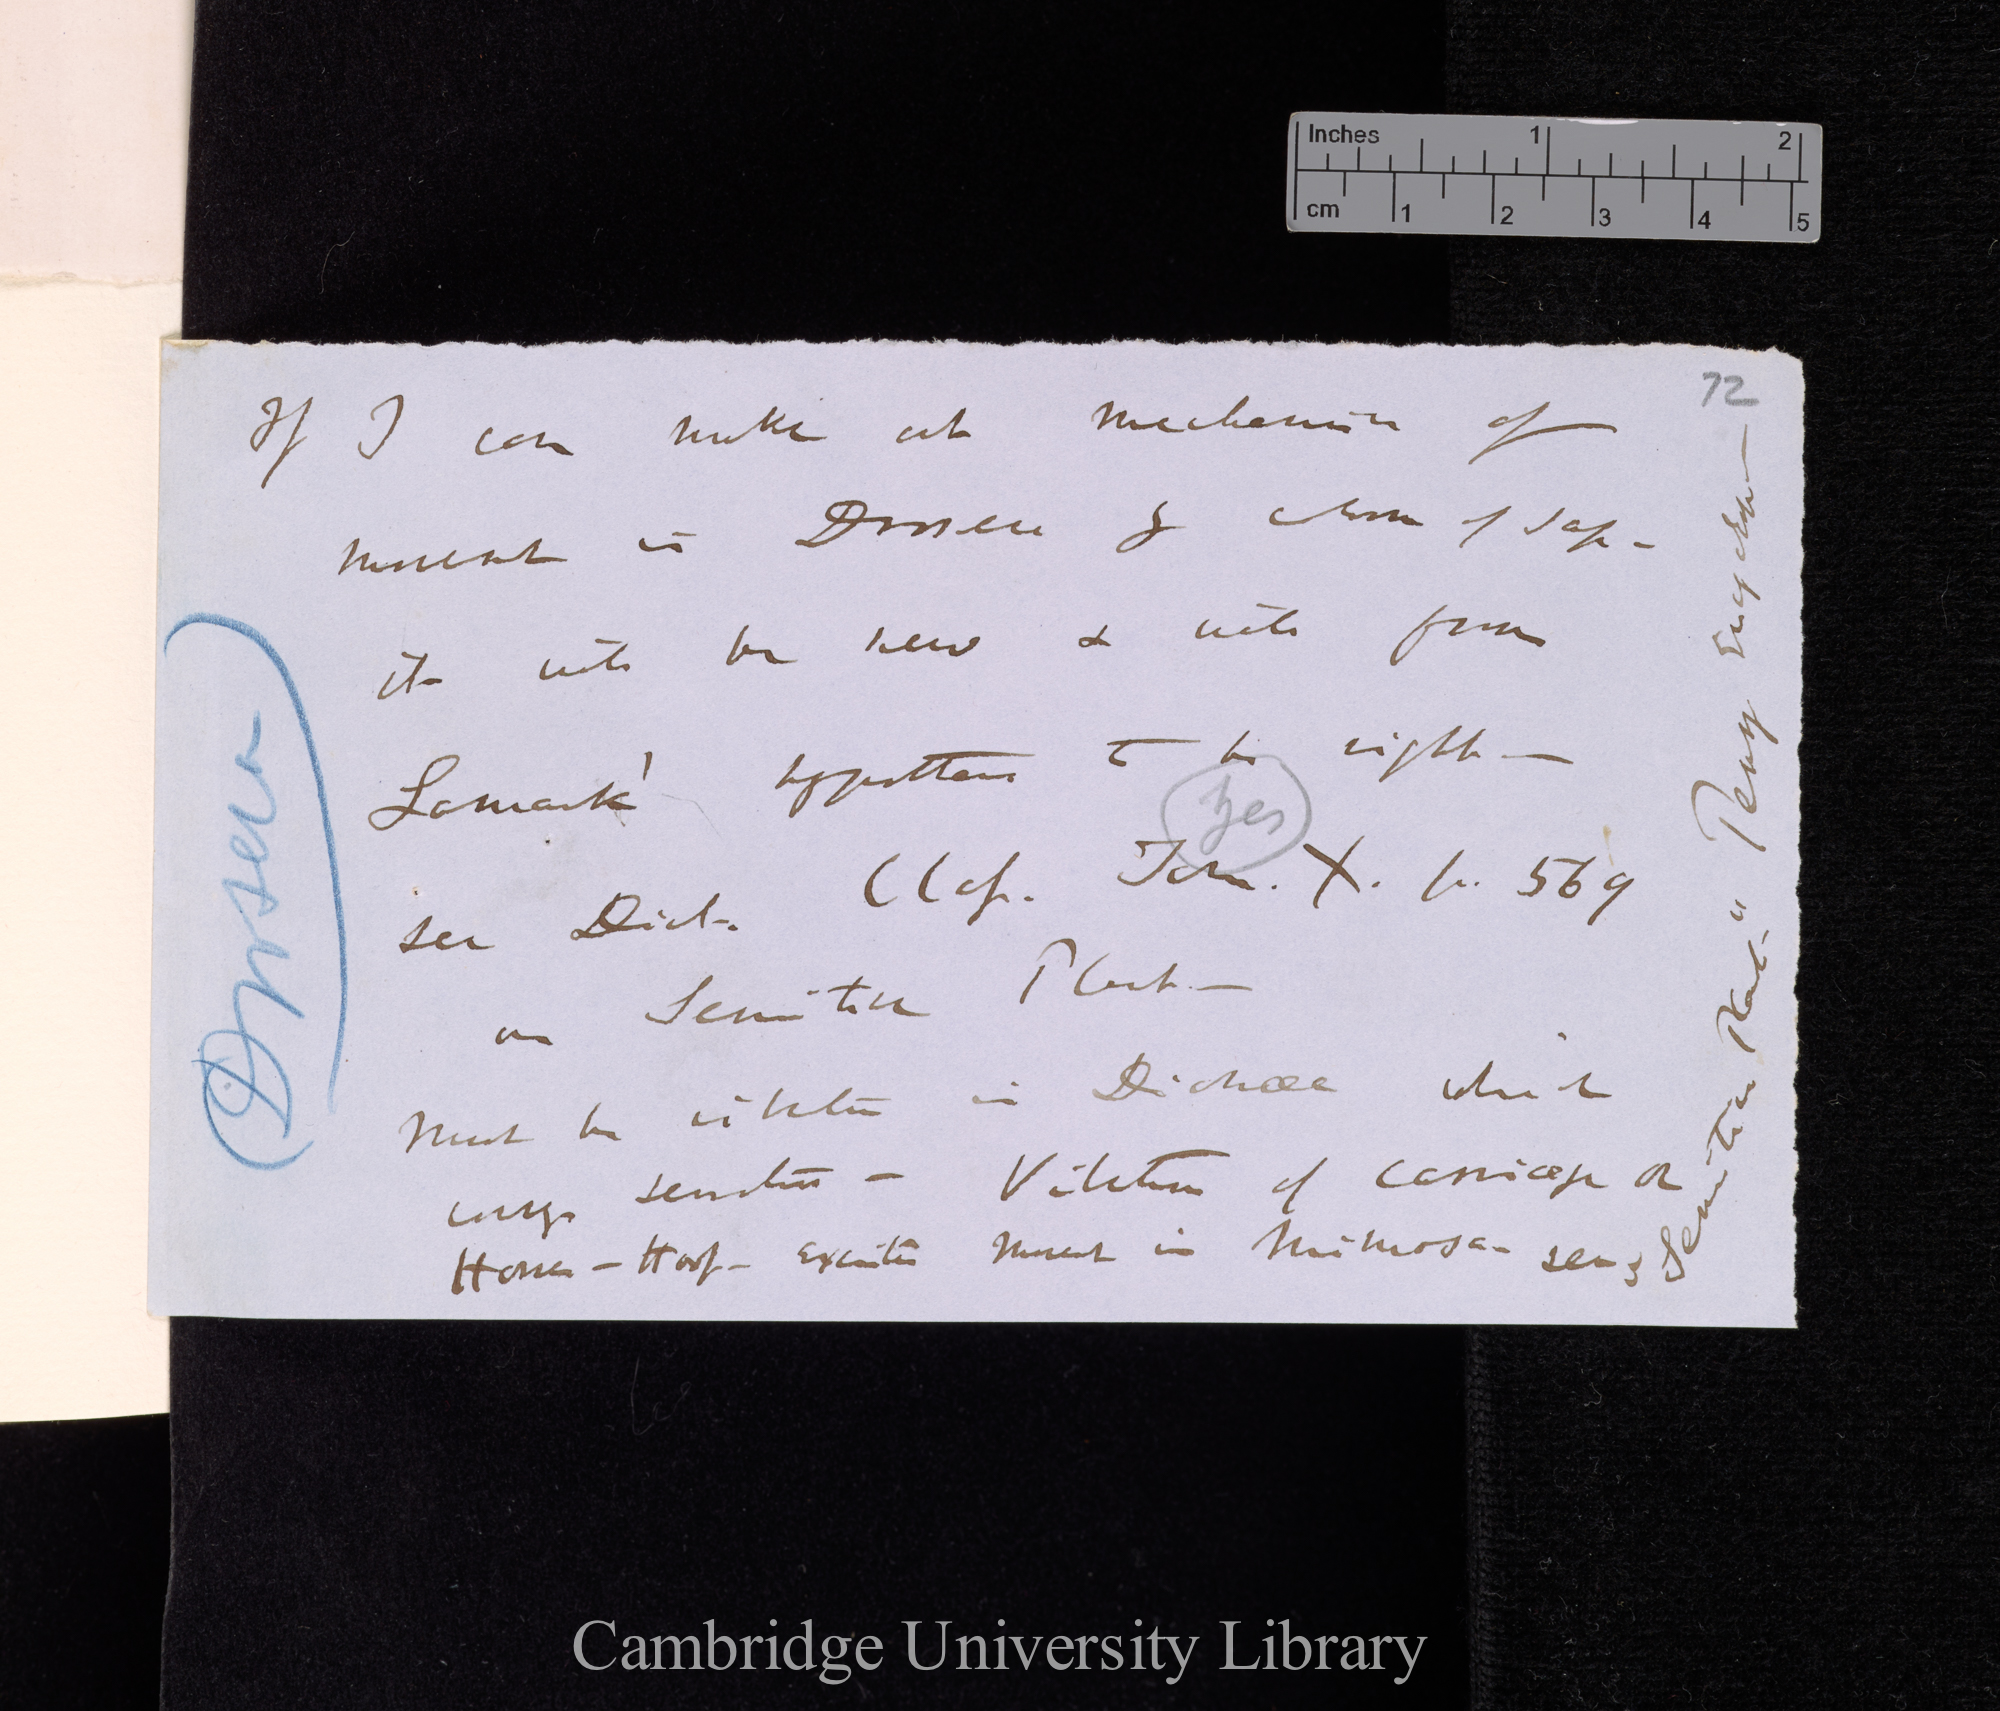 72
If I can make out mechanism of
movement in Drosera by absorn of sap-
it will be new & will prove
Lamarck' hypothesis to be right —
yes
see Dict. Class. Tom. X. p. 569
on Sensitive Plant. —
Must be vibration in Dionæa which
sensation — Vibration of carriage or
Horse-Hoof- excites movement in Mimosa - see
"Sensitive Plant" Penny Encyclop —
Drosera
Inches 1 2
cm 1 2 3 4 5
Cambridge University Library